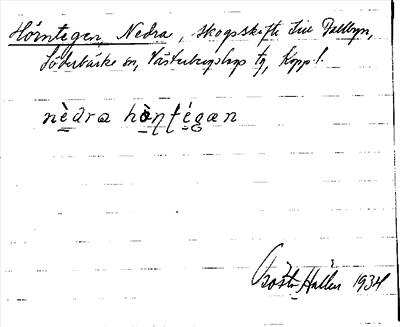 Hörntegen, Nedra, skogsskifte till Dalbyn,
Söderbärke sn, Västerbergslags tg, Kopp. l.
nèdra hò̤ṇtégæn
Gösta Hallin 1934